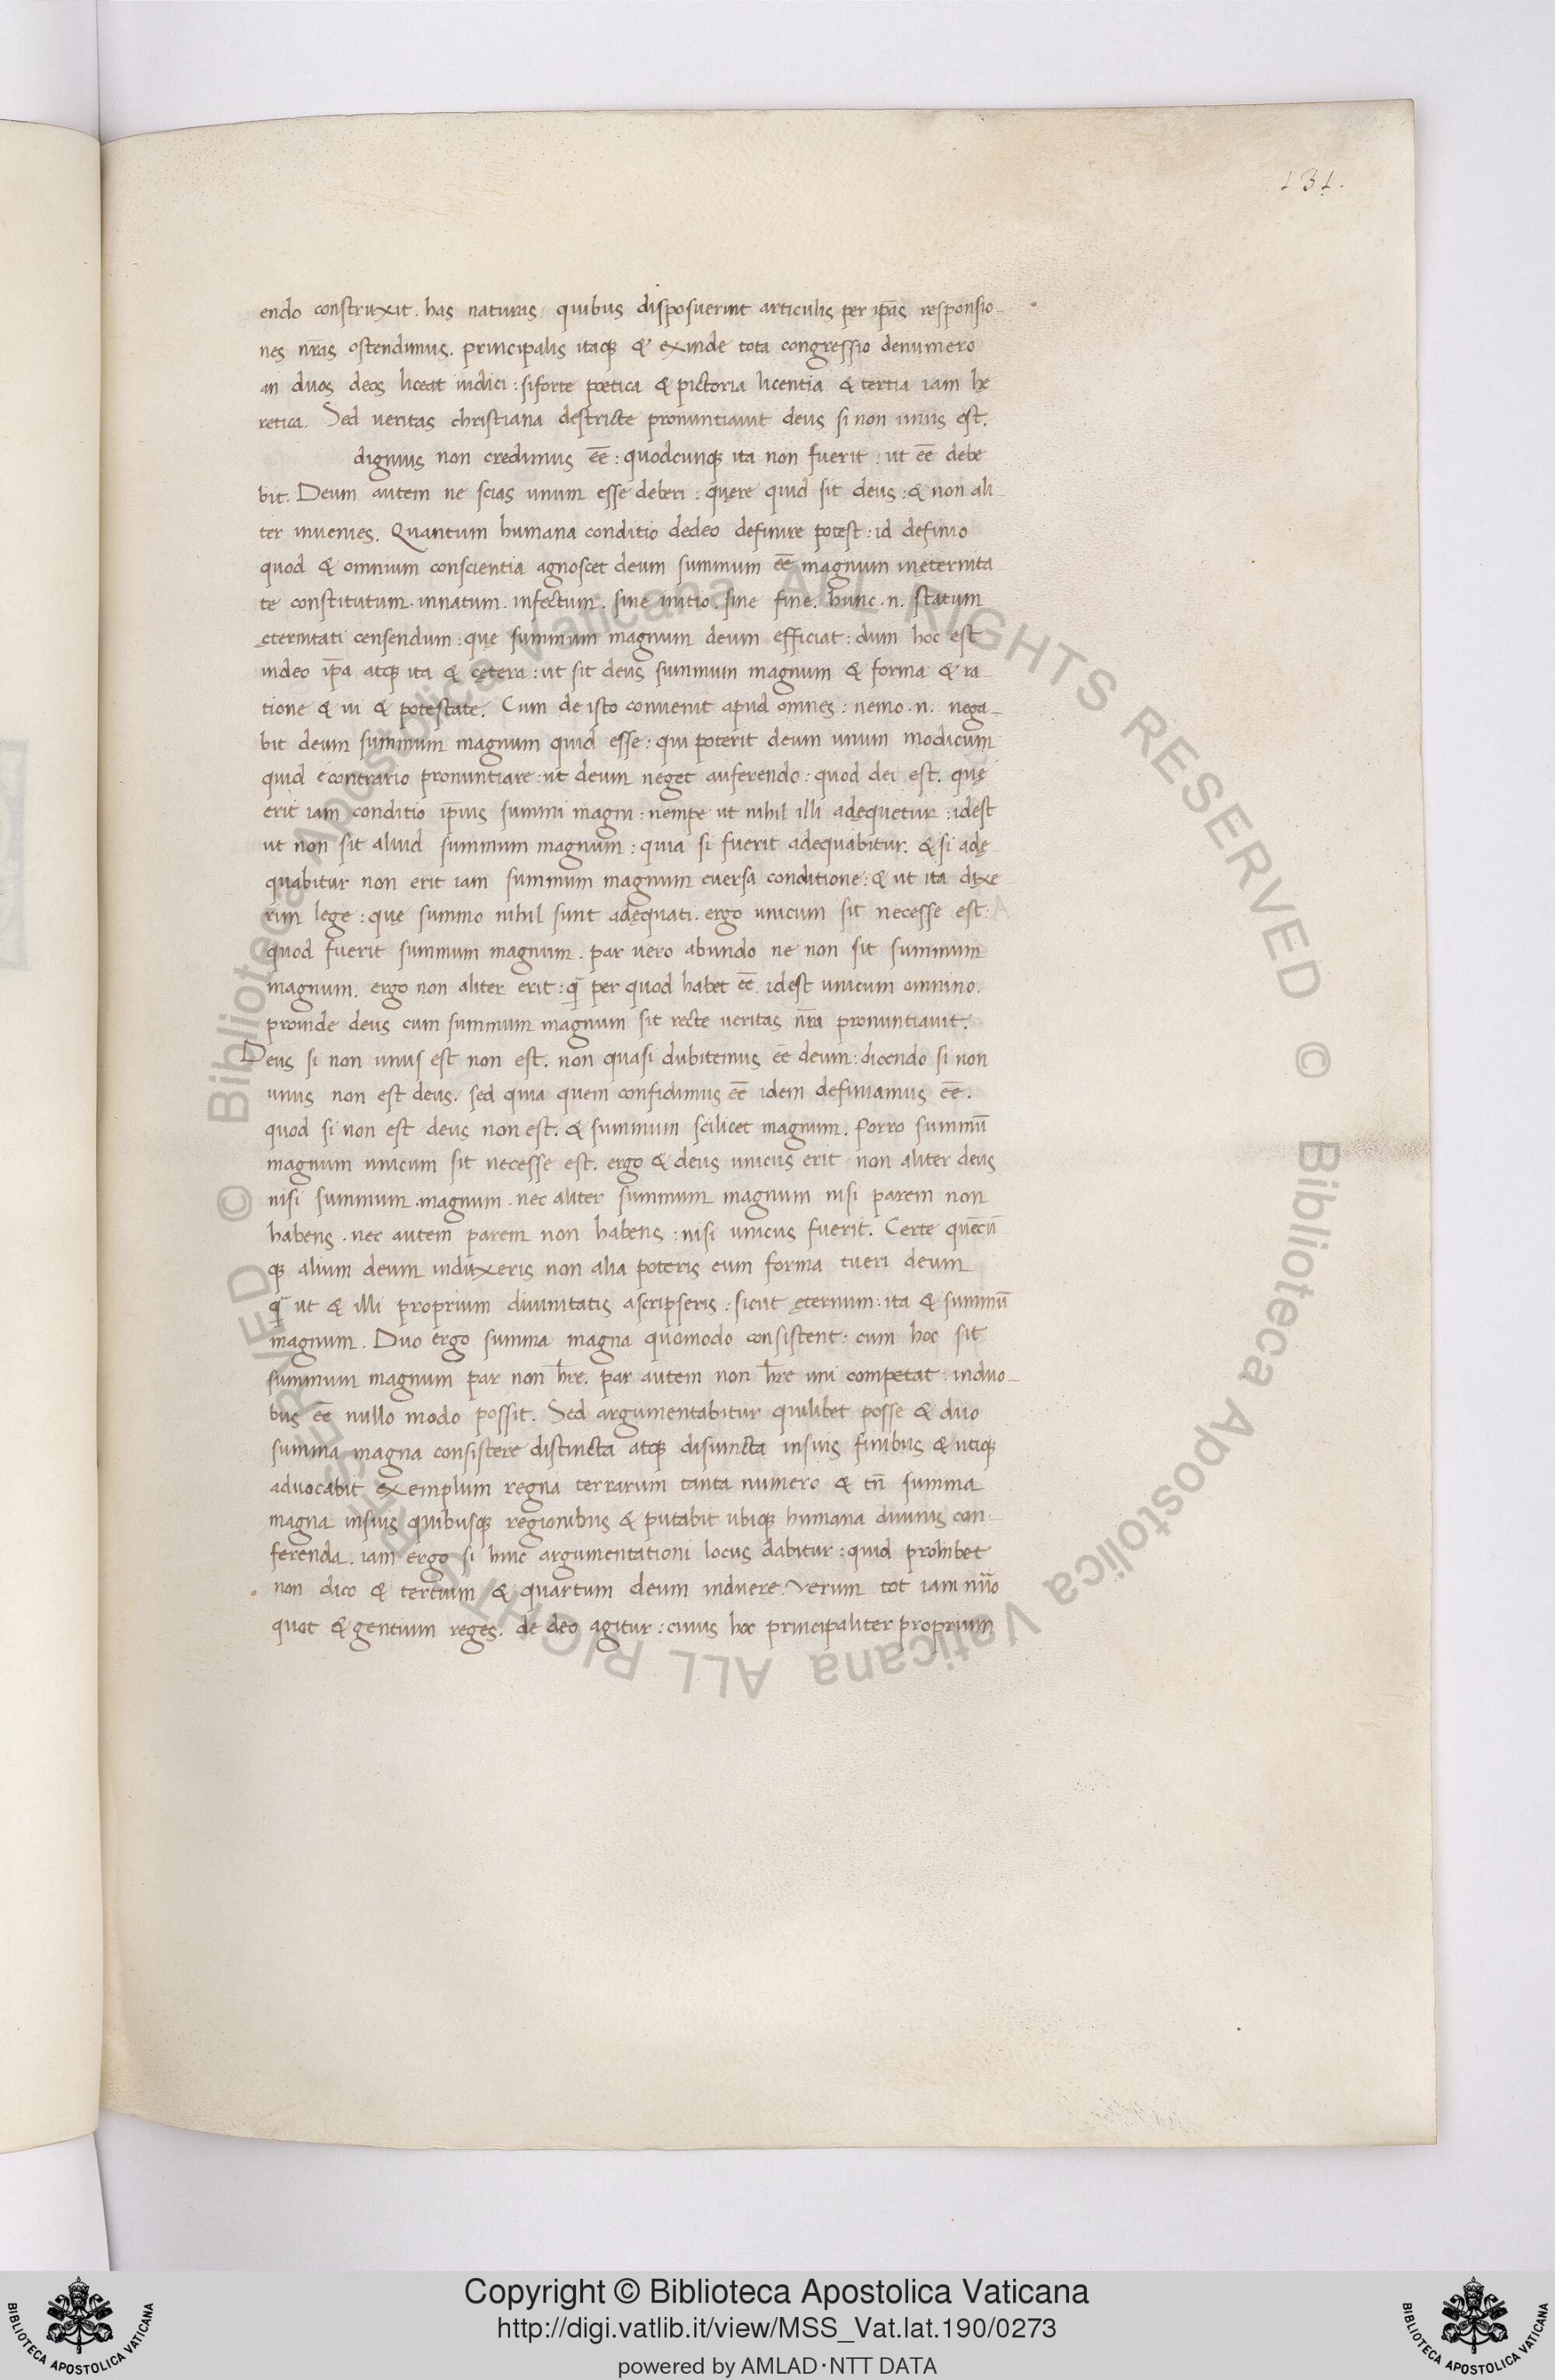 131.
endo construxit. has naturas quibus disposuerint articulis per ip̄as responsio-
nes nr̄as ostendimus. principalis itaqꝫ & exinde tota congressio denumero
an duos deos liceat induci: siforte poetica & pictoria licentia & tertia iam hę
retica. Sed ueritas christiana destricte pronuntiauit deus si non unus est.
dignius non credimus eē: quodcunqꝫ ita non fuerit: ut eē debe
bit. Deum autem ne scias unum esse deberi: quęre quid sit deus: & non ali-
ter inuenies. Quantum humana conditio dedeo definire potest: id definio
quod & omnium conscientia agnoscet deum summum eē magnum inęternita
te constitutum. innatum. infectum. sine initio. sine fine. hunc .n. statum
ęternitati censendum: quę summum magnum deum efficiat: dum hoc est
indeo ip̄a atqꝫ ita & cętera: ut sit deus summum magnum & forma & ra-
tione & ui & potestate. Cum de isto conuenit apud omnes: nemo .n. nega-
bit deum summum magnum quid esse: qui poterit deum unum modicum
quid econtrario pronuntiare: ut deum neget auferendo: quod dei est. quę
erit iam conditio ip̄ius summi magni: nempe ut nihil illi adęquetur: idest
ut non sit aliud summum magnum: quia si fuerit adequabitur. & si adę
quabitur non erit iam summum magnum euersa conditione: & ut ita dixe
rim lege: quę summo nihil sunt adęquati. ergo unicum sit necesse est:
quod fuerit summum magnum. par uero abundo ne non sit summum
magnum. ergo non aliter erit: q̄ per quod habet eē. idest unicum omnino.
proinde deus cum summum magnum sit recte ueritas nr̄a pronuntiauit.
Deus si non unus est non est. non quasi dubitemus eē deum: dicendo si non
unus non est deus. sed quia quem confidimus eē idem definiamus eē.
quod si non est deus non est. & summum scilicet magnum. Porro summū
magnum unicum sit necesse est. ergo & deus unicus erit non aliter deus
nisi summum magnum. nec aliter summum magnum nisi parem non
habens. nec autem parem non habens: nisi unicus fuerit. Certe quēcū
qꝫ alium deum induxeris non alia poteris eum forma tueri deum
q̄ ut & illi proprium diuinitatis ascripseris: sicut ęternum: ita & summū
magnum. Duo ergo summa magna quomodo consistent: cum hoc sit
summum magnum par non hr̄e. par autem non hr̄e uni competat: induo-
bus eē nullo modo possit. Sed argumentabitur quilibet posse & duo
summa magna consistere distincta atqꝫ disiuncta insuis finibus & utiqꝫ
aduocabit exemplum regna terrarum tanta numero & tn̄ summa
magna insuis quibusqꝫ regionibus & putabit ubiqꝫ humana diuinis con-
ferenda. iam ergo si huic argumentationi locus dabitur: quid prohibet
non dico & tertium & quartum deum induere. uerum tot iam nūo
quot & gentium reges. de deo agitur: cuius hoc principaliter proprium
© Biblioteca Apostolica Vaticana ALL RIGHTS RESERVED © Biblioteca Apostolica Vaticana ALL RIGHTS RESERVED
Copyright © Biblioteca Apostolica Vaticana
http://digi.vatlib.it/view/MSS_Vat.lat.190/0273
powered by AMLAD·NTT DATA
BIBLIOTECA APOSTOLICA VATICANA
BIBLIOTECA APOSTOLICA VATICANA